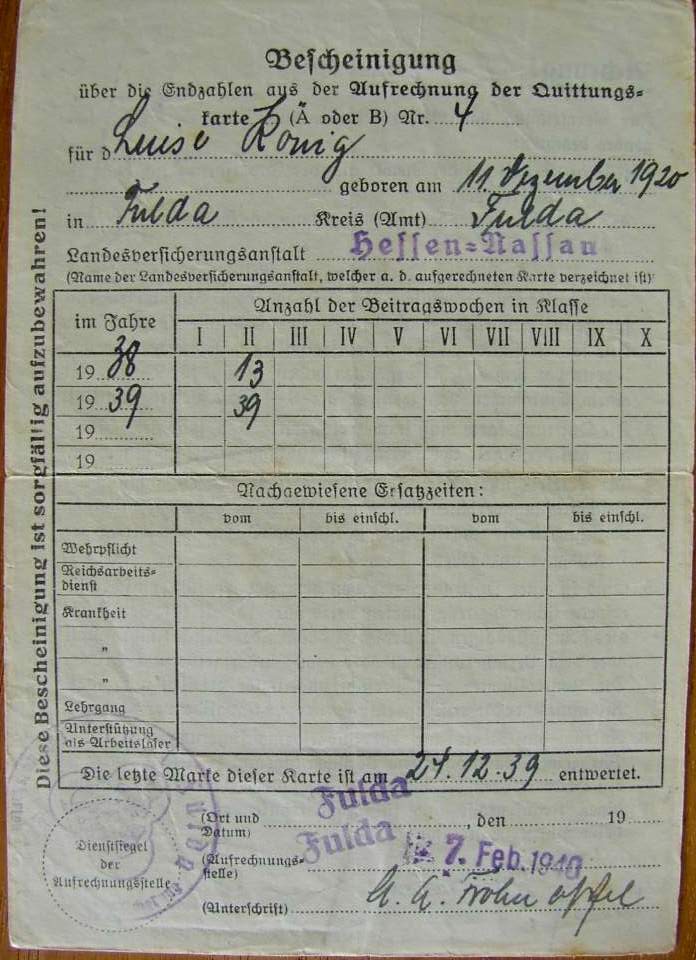 Bescheinigung
über die Endzahlen aus der Aufrechnung der Quittungs-
karte (A oder B) Nr. 4
für d Luise König
geboren am 11 Dezember 1920
in Fulda Kreis (Amt) Fulda
Landesversicherungsanstalt Hessen=Nassau
(Name der Landesversicherungsanstalt, welcher a. d. aufgerechneten Karte verzeichnet ist)
im Jahre
Anzahl der Beitragswochen in Klasse
I II III IV V VI VII VIII IX X
1938 13
1939 39
19
19
Nachgewiesene Ersatzzeiten:
vom bis einschl. vom bis einschl.
Wehrpflicht
Reichsarbeits-
dienst
Krankheit
"
"
Lehrgang
Unterstützung
als Arbeitsloser
Die letzte Marke dieser Karte ist am 24.12.39 entwertet.
Fulda
(Ort und
Datum) , den 19
Fulda
(Aufrechnungs-
stelle) 7. Feb. 1940
(Unterschrift)
Dienstsiegel
der
Aufrechnungsstelle
Fulda
Diese Bescheinigung ist sorgfältig aufzubewahren!